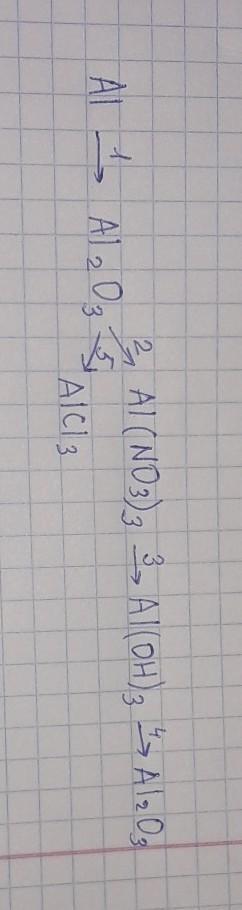 Al 1→ Al₂O₃ 2→ Al(NO₃)₃ 3→ Al(OH)₃ 4→ Al₂O₃
5→ AlCl₃